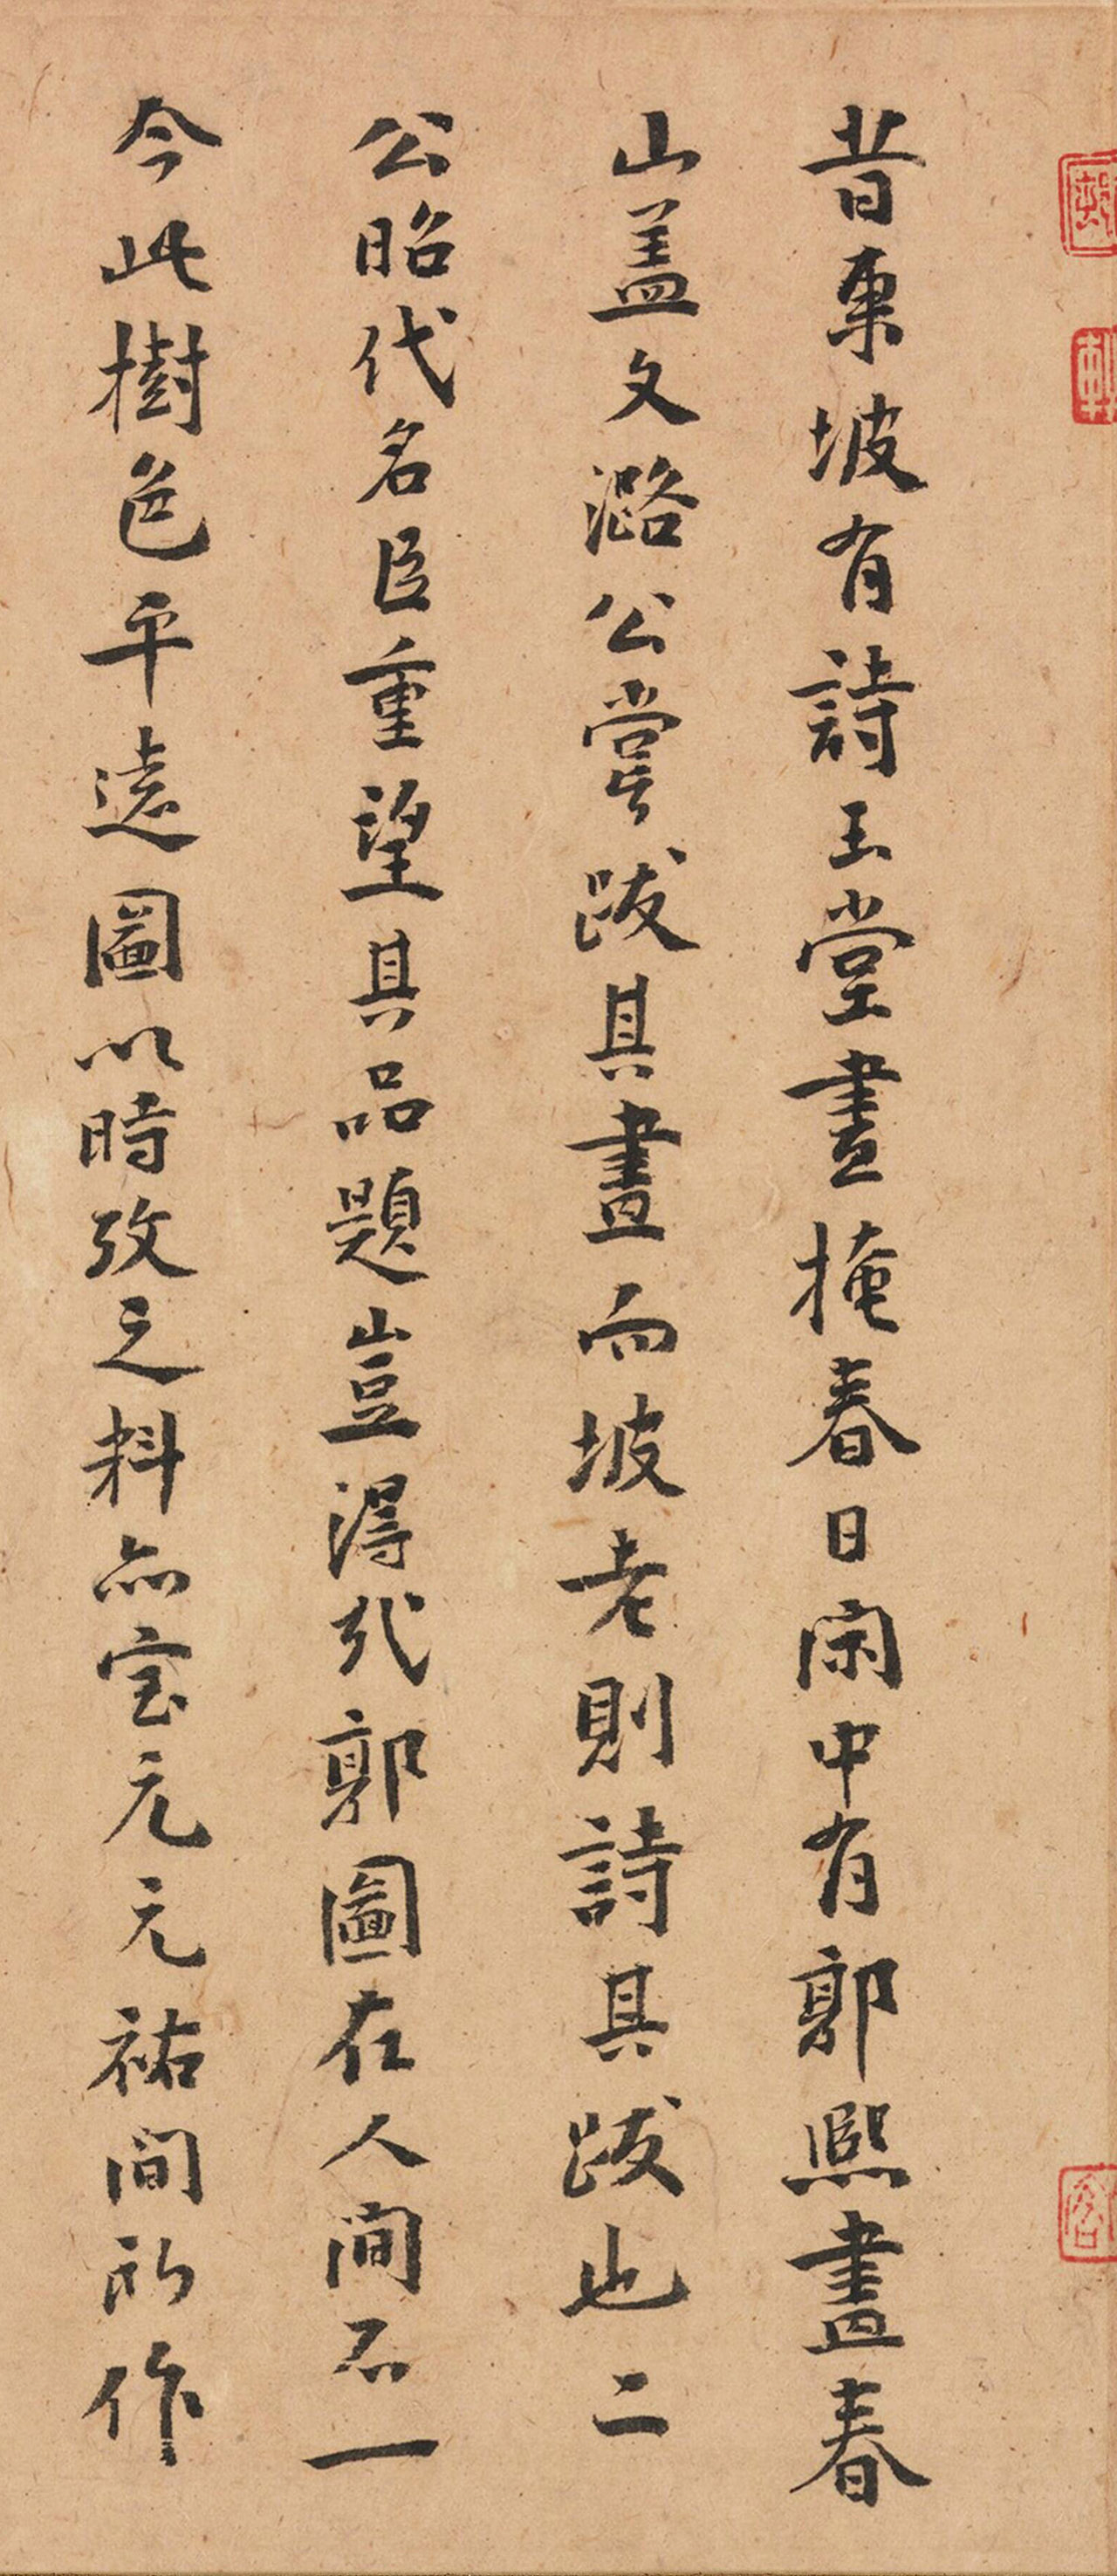 昔東坡有詩玉堂晝掩春日閑中有郭熙畫春
山盖文潞公嘗跋其畫而坡老則詩其跋也二
公昭代名臣重望其品題豈得郭圖在人間不一
今此樹色平遠圖以時攷之料亦宝元元祐間所作